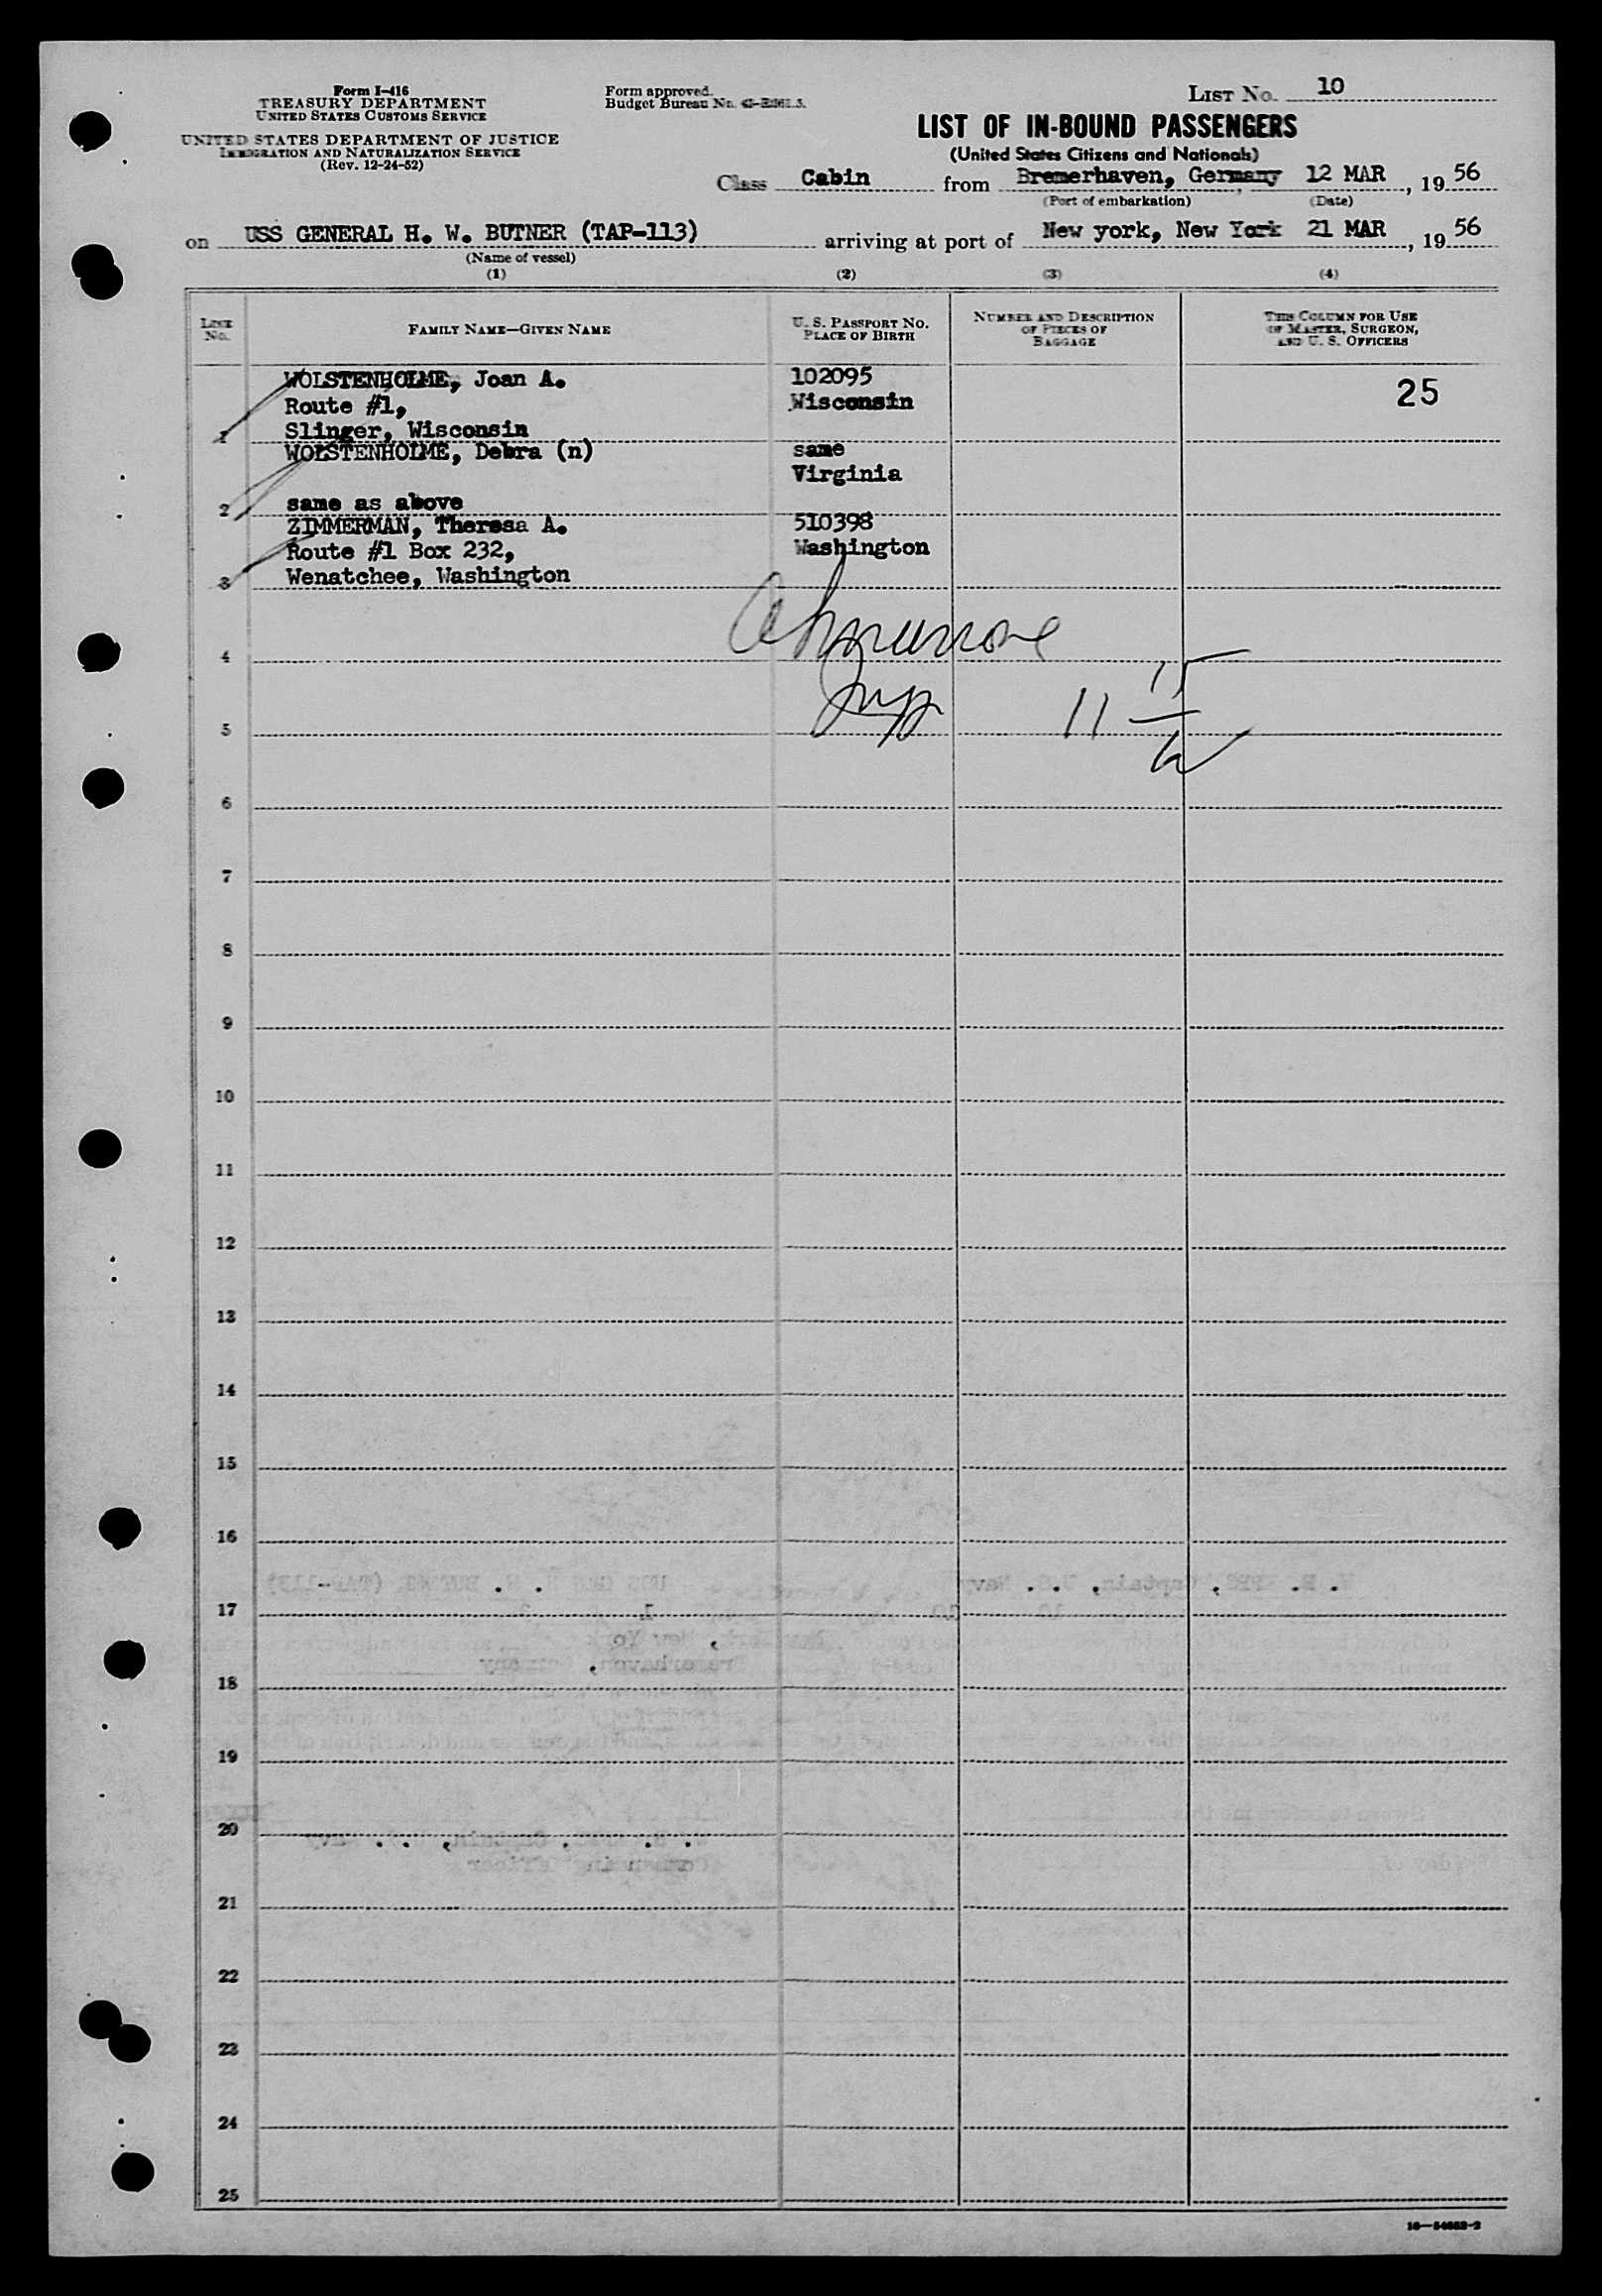 Form I-416
TREASURY DEPARTMENT
UNITED STATES CUSTOMS SERVICE
UNITED STATES DEPARTMENT OF JUSTICE
IMMIGRATION AND NATURALIZATION SERVICE
(Rev. 12-24-52)
Form approved.
Budget Bureau No.
LIST No. 10
LIST OF IN-BOUND PASSENGERS
(United States Citizens and Nationals)
Class Cabin from Bremerhaven, Germany 12 MAR, 19 56
(Port of embarkation) (Date)
on USS GENERAL H. W. BUTNER (TAP-113) arriving at port of New york, New York 21 MAR, 19 56
(Name of vessel)
(1) (2) (3) (4)
LINE No. FAMILY NAME—GIVEN NAME U. S. PASSPORT No. PLACE OF BIRTH NUMBER AND DESCRIPTION OF PIECES OF BAGGAGE THIS COLUMN FOR USE OF MASTER, SURGEON, AND U. S. OFFICERS
WOLSTENHOLME, Joan A. 102095 25
Route #1, Wisconsin
1 Slinger, Wisconsin
WOLSTENHOLME, Debra (n) same
Virginia
2 same as above
ZIMMERMAN, Theresa A. 510398
Route #1 Box 232, Washington
3 Wenatchee, Washington
4
5 11
6
7
8
9
10
11
12
13
14
15
16
17
18
19
20
21
22
23
24
25